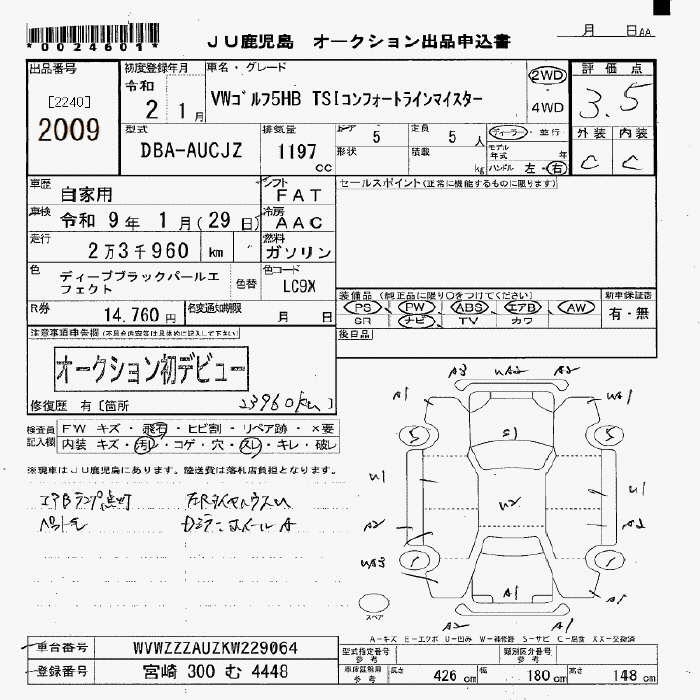 *0024601*
JU鹿児島 オークション出品申込書
月 日AA
出品番号
[2240]
2009
初度登録年月
令和
2 1月
車名・グレード
VWゴルフ5HB TSIコンフォートラインマイスター
2WD
4WD
評価点
3.5
外装 内装
C C
型式
DBA-AUCJZ
排気量
1197
cc
ドア
5
定員
5人
形状
積載
kg
ディーラー・並行
モデル年式
年
ハンドル 左・右
車歴
自家用
シフト
FAT
車検
令和 9年 1月(29日)
冷房
AAC
走行
2万3千960 km
燃料
ガソリン
色
ディープブラックパールエフェクト
色替
色コード
LC9X
R券
14,760円
名変通知期限
月 日
セールスポイント(正常に機能するものに限ります)
装備品(純正品に限り○をつけてください)
PS PW ABS エアB AW
SR ナビ TV カワ
新車保証書
有・無
後日品
注意事項申告欄(不具合内容等は具体的に記入して下さい)
オークション初デビュー
修復歴 有〔箇所 〕
23960km
検査員記入欄
FW キズ・飛石・ヒビ割・リペア跡・×要
内装 キズ・汚れ・コゲ・穴・スレ・キレ・破レ
※現車はJU鹿児島にあります。陸送費は落札店負担となります。
エアBランプ点灯
ペット毛
A3 UA2 A2
A1 UA1
S S
S1
U1 U1
U2
A2 A2
UA3
A1
A2 A1
スペア
A-キズ E-エクボ U-凹み W-補修跡 S-サビ C-腐食 XX-交換済
車台番号 WVWZZZAUZKW229064
登録番号 宮崎 300 む 4448
型式指定番号 参考
類別区分番号 参考
車検証積用 参考
長さ 426 cm 幅 180 cm 高さ 148 cm